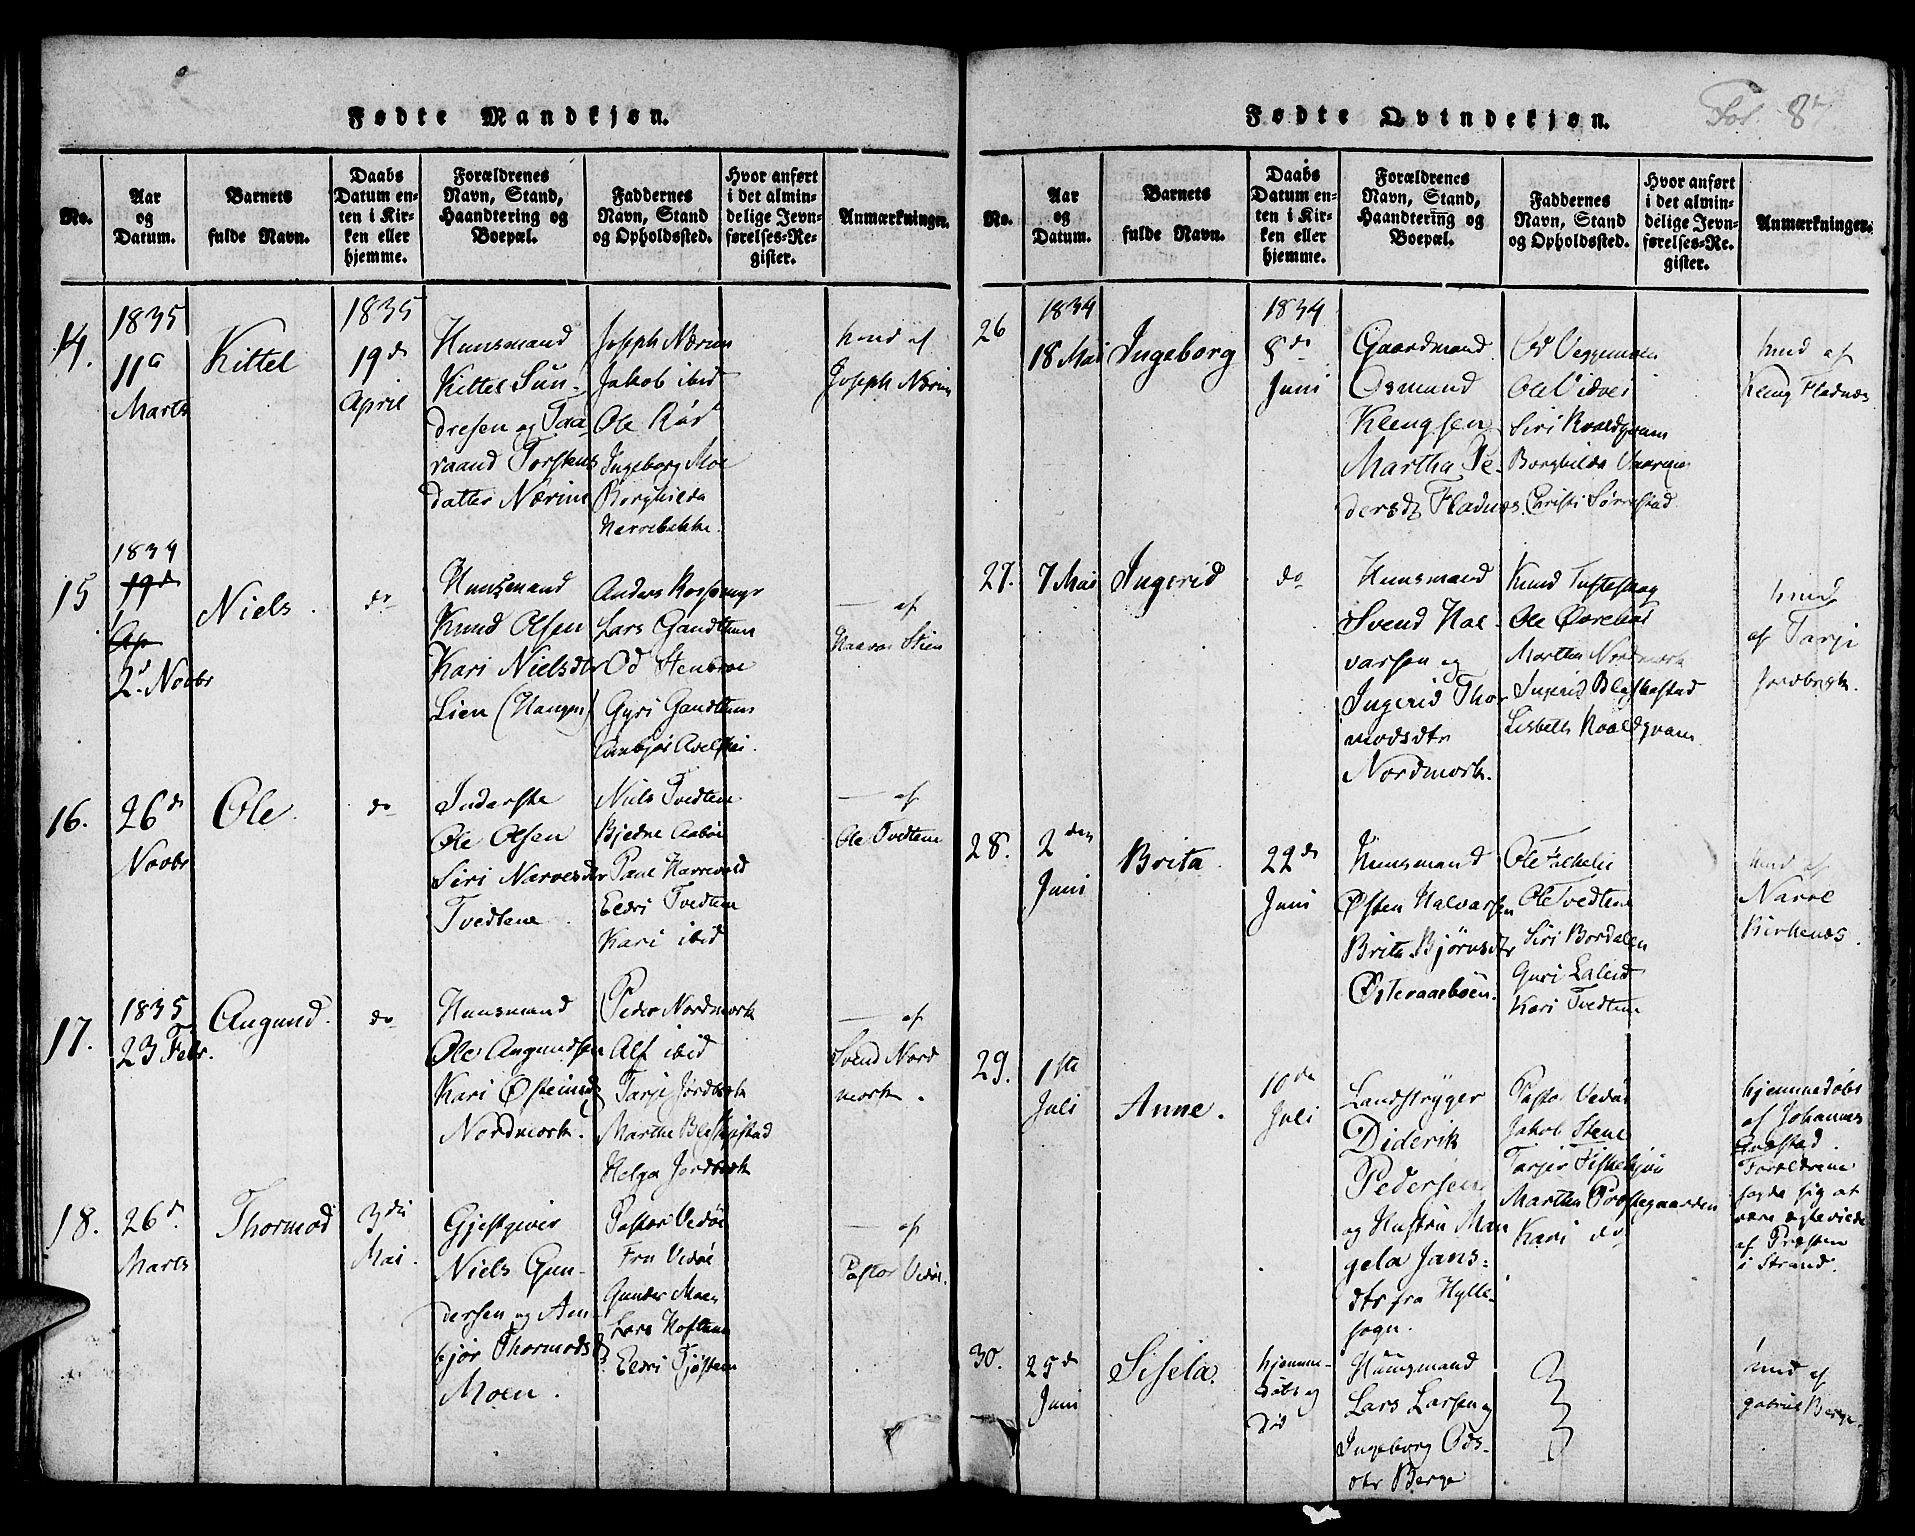 Fødte Mandkjøn.
No.
Aar
og
Datum.
Barnets
fulde Navn.
Daabs
Datum en-
ten i Kir-
ken eller
hjemme.
Forældrenes
Navn, Stand,
Haandtering og
Boepæl.
Faddernes
Navn, Stand
og Opholdssted.
Hvor anført
i det almin-
delige Jevn-
førelses-Re-
gister.
Anmærkninger.
14.
1835
11te
Marts
Kittel
1835
19de
April
Huusmand
Kittel Sun-
dresen og Taa-
raand Torstens
datter Nærim
Joseph Nærim
Jakob ibid
Ole Rød
Ingeborg Moe
Borghilda
Narrebakke.
hmd af
Joseph Nærim
15
1834
19de
Ap
2d Novbr
Niels.
do
Huusmand
Knud Olsen
Kari Nielsdtr
Lien (Haugen)
Anders Rossemyr
Lars Gandthun
Od Stenbroe
Gyri Gandthun
— af
Haavar Stien
16.
26de
Novbr
Ole
do
Inderste
Ole Olsen
Siri Narvesdtr
Tvedtene
Niels Tvedtene
Bjedne Aabøe
Paul Harrevold
Eldri Tvedtene
Kari ibid
— af
Ole Tvedtene
17.
1835
23 Febr.
Augund.
do
Huusmand
Ole Augundsen
Kari Østeinsd
Nordmork.
Peder Nordmork
Alf ibid
Tarje Jordbrek
Marthe Bleskestad
Helga Jordbrek
— af
Svend Nord
mork.
18.
26de
Marts
Thormod
3die
Mai.
Gjestgiver
Niels Gun-
dersen og An-
bjør Thormods
Moen.
Pastor Vedøe
Fru Vedøe
Gunder Moen
Lars Hoftun
Eldri Tjøstem
— af
Pastor Vedøe.
Fødte Qvindekjøn.
Fol. 8
No.
Aar
og
Datum.
Barnets
fulde Navn.
Daabs
Datum en-
ten i Kir-
ken eller
hjemme.
Forældrenes
Navn, Stand,
Haandtering og
Boepæl.
Faddernes
Navn, Stand
og Opholdssted.
Hvor anført
i det almin-
delige Jevn-
førelses-Re-
gister.
Anmærkninger.
26
1834
18 Mai
Ingeborg
1834
8de
Juni
Gaardmand
Osmund
Klengsen
Martha Pe-
dersdtr Fladnes
Od Veggemoen
Ole Vidvei
Siri Roaldqvam
Borghilda
Christi Sørestad
hmd af
Kleng Fladnæs
27.
7 Mai
Ingerid
do
Huusmand
Svend Hal-
varsen og
Ingerid Thor
modsdtr
Nordmork.
Knud Tufteskog
Ole Øvrebød
Marthe Nordmork
Ingerid Bleskestad
Lisbeth Roaldqvam
hmd
af Tarje
Jordbrek.
28.
2den
Juni
Brita
22de
Juni
Huusmand
Østen Halvarsen
Brita Bjørnsdtr
Østeraaebøen.
Ole Fattelie
Ole Tvedtene
Siri Bordalen
Guri Laleid
Kari Tvedtene
hmd af
Narve
Birkenæs.
29.
1ste
Juli
Anne.
10de
Juli
Landstryger
Diderik
Pedersen
og Hustru Man
gela Jans-
dtr fra Hylle-
sogn.
Pastor Vedøe
Jakob Stene
Tarjer Fiskekjøn
Marthe Præstegaarden
Kari do
hjemmedøbt
af Johannes
Græstad.
Forældrene
sagde sig at
være ægteviede
af Præsten
i Strand.
30.
25de
Juni
Sisela.
hjemme-
døbt og
død
Huusmand
Lars Larsen og
Ingeborg Ods-
dtr Berge
hmd af
gabriel Berge.